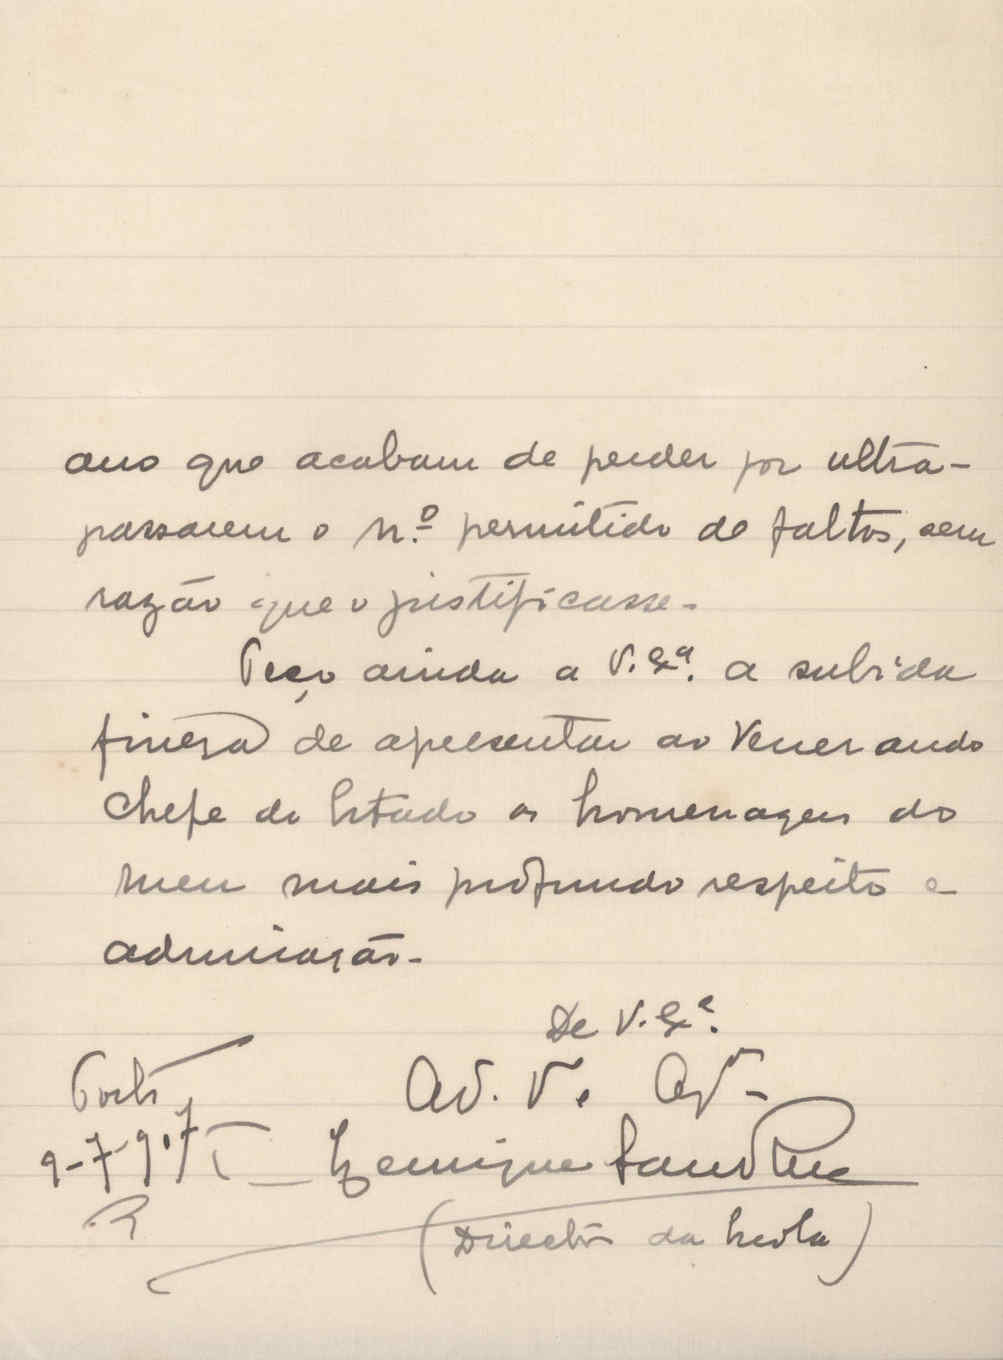 ano que acabam de perder por ultra-
passarem o nº. permitido de faltas, sem
razão que o justificasse.
Peço ainda a V. Exª. a subida
fineza de apresentar ao Venerando
Chefe do Estado as homenagens do
meu mais profundo respeito e
admiração.-
De V. Exª.
Porto
9-7-
Henrique
(Director da Escola)